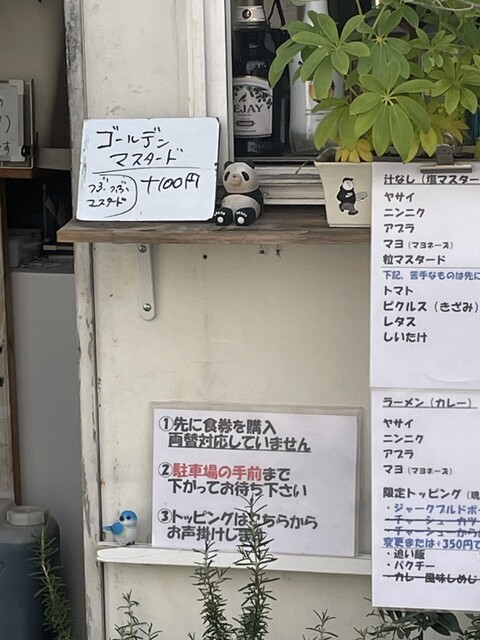 ゴールデン
マスタード
つぶつぶ
マスタード
+100円
EJAY
汁なし（塩マスター
ヤサイ
ニンニク
アブラ
マヨ（マヨネーズ）
粒マスタード
下記、苦手なものは先に
トマト
ピクルス（きざみ）
レタス
しいたけ
ラーメン（カレー）
ヤサイ
ニンニク
アブラ
マヨ（マヨネーズ）
限定トッピング（現
・ジャークプルドポー
・チャーシューカツ
・チャーシューから
変更または+350円で
・追い飯
・パクチー
・カレー風味しめじ
①先に食券を購入
両替対応していません
②駐車場の手前まで
下がってお待ち下さい
③トッピングはこちらから
お声掛けします